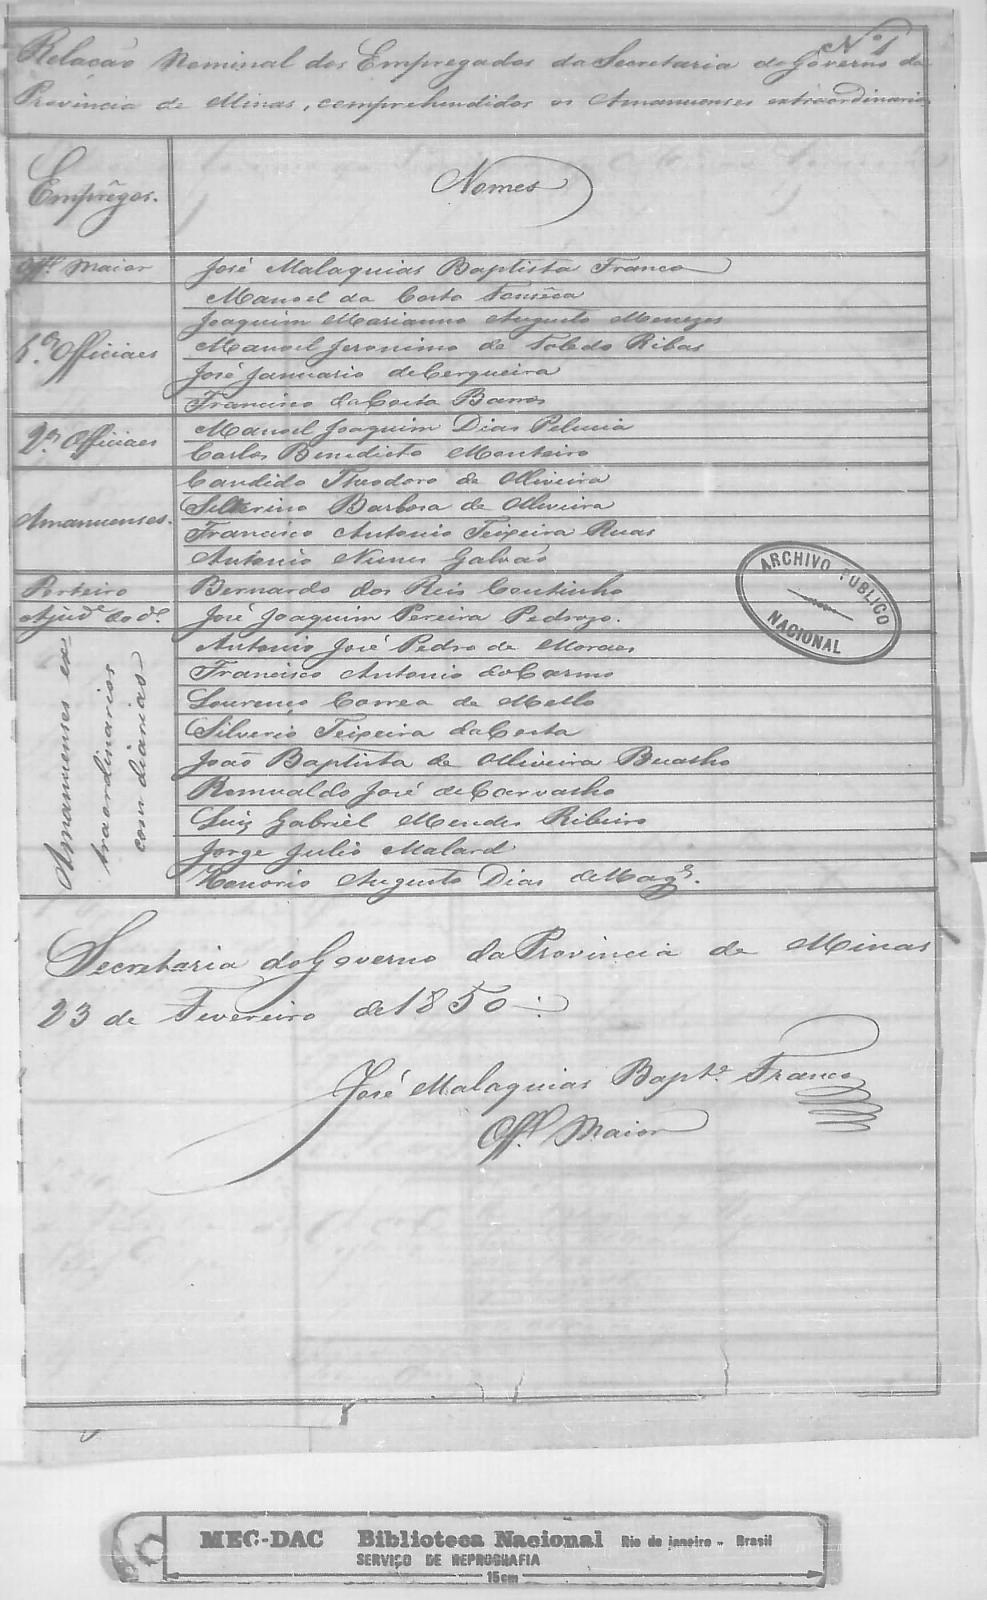 Nº 1
Relação Nominal dos Empregados da Secretaria do Governo da
Provincia de Minas, comprehendidos os Amanuenses extraordinarios
Emprêgos. Nomes
Offl. Maior José Malaquias Baptista Franco
Manoel da Costa Fonsêca
Joaquim Marianno Augusto Menezes
1.os Officiaes Manoel Jeronimo de Toledo Ribas
José Januario de Cerqueira
Francisco da Costa Barros
2.os Officiaes Manoel Joaquim Dias Pelucia
Carlos Benedicto Monteiro
Candido Theodoro de Oliveira
Amanuenses. Silverino Barbosa de Oliveira
Francisco Antonio Teixeira Ruas
Antonio Nunes Galvão
Porteiro Bernardo dos Reis Coutinho
Ajude. do do. José Joaquim Pereira Pedrozo.
Amanuenses ex
traordinarios
com diarias
Antonio José Pedro de Moraes
Francisco Antonio do Carmo
Lourenço Correa de Mello
Silverio Teixeira da Costa
João Baptista de Oliveira
Romualdo José de Carvalho
Luiz Gabriel Mendes Ribeiro
Jorge Julio Malard
Honorio Augusto Dias de Mags.
ARCHIVO PUBLICO
NACIONAL
Secretaria do Governo da Provincia de Minas
23 de Fevereiro de 1850
José Malaquias Bapta. Franco
Offl. Maior
MEC-DAC Biblioteca Nacional Rio de janeiro - Brasil
SERVIÇO DE REPROGRAFIA
15cm